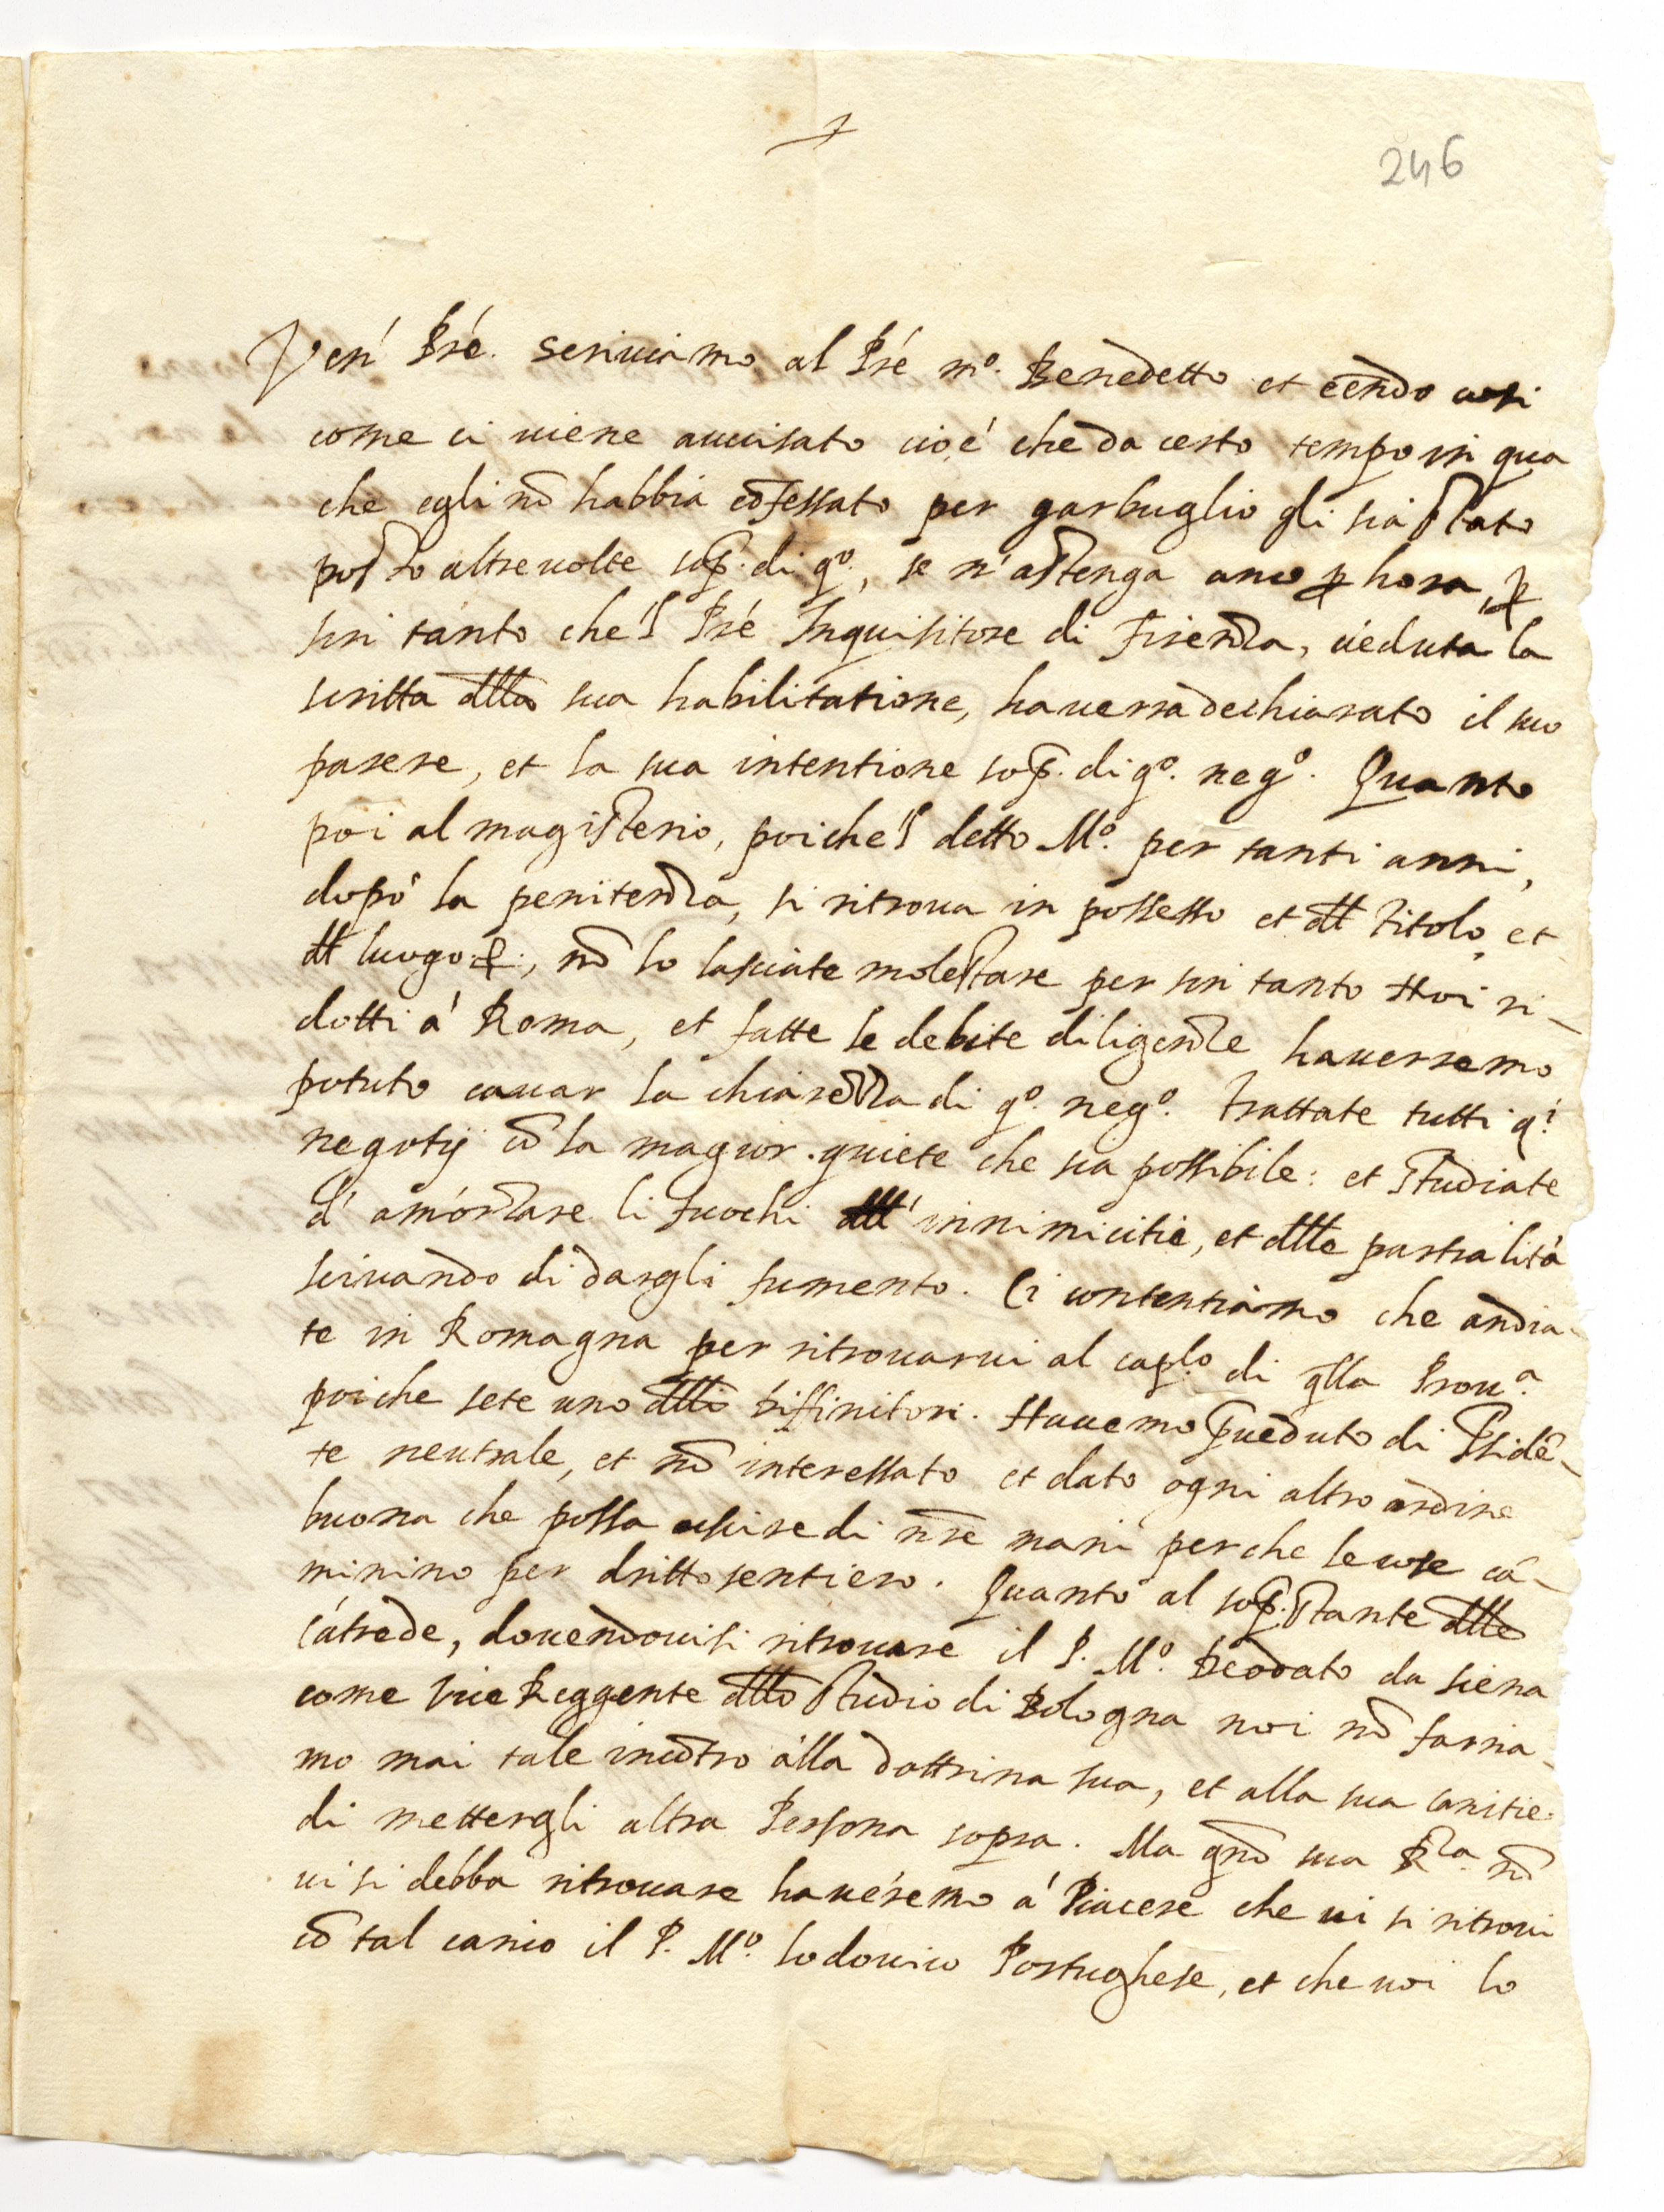 +
246
Ven' Pré. Scriviamo al Pré m.º Benedetto et eēndo così
come ci viene avvisato cioé che da certo tempo in qua
che egli nō habbia cōfessato per garbuglio gli sia stato
posto altre volte sop̄. di q.º, se n'astenga anco p hora, p
sin tanto che'l Pré Inquisitore di Firenza, veduta la
scritta dlla sua habilitatione, haverra dechiarato il suo
parere, et la sua intentione sop̄. di q.º neg.º. Quanto
poi al magisterio, poiche'l detto M.º per tanti anni,
dopò la penitenza, si ritrova in possesso et dl titolo, et
dl luogo, nō lo lasciate molestare per sin tanto noi ri-
dotti à Roma, et fatte le debite diligenze haverremo
potuto cavar la chiarezza di q.º neg.º. Trattate tutti q.i
negotij cō la magior quiete che sia possibile: et studiate
d'amorzare li fuochi dll'innimicitie, et dlle partialità
scivando di dargli fumento. Ci contentiamo che andia-
te in Romagna per ritrovarvi al cap.lo di qlla Prov.a
poiche sete uno dlli diffinitori. Havemo p̄veduto di Psidē-
te neutrale, et nō interessato et dato ogni altro ordine
buono che possa uscire di nr̄e mani perche le cose ca-
minino per dritto sentiero. Quanto al sop̄.stante dlle
catrede, dovendovisi ritrovare il P. M.º Deodato da Siena
come Vice Reggente dllo studio di Bologna noi nō faria-
mo mai tale incōtro alla dottrina sua, et alla sua canitie
di mettergli altra Persona sopra. Ma qnō sua R.za nō
vi si debba ritrovare haveremo à Piacere che vi si ritrovi
cō tal carico il P. M.º Lodovico Portughese, et che voi lo